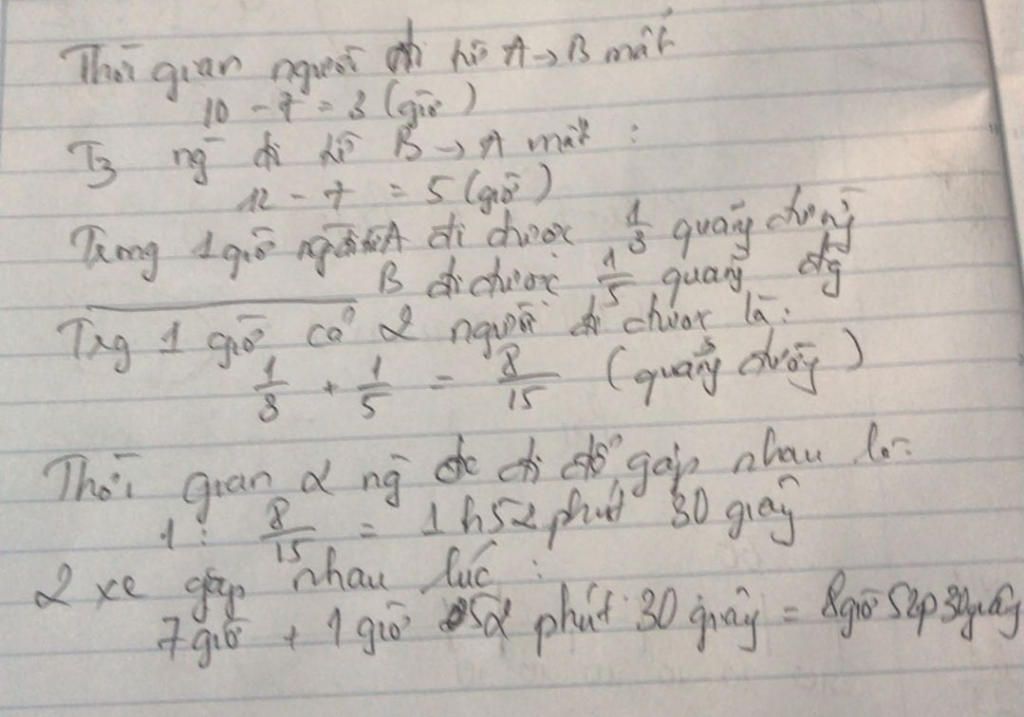 Thời gian người đi từ A → B mất
10 - 7 = 3 (giờ)
TG ng` đi từ B → A mất :
12 - 7 = 5 (giờ)
Trong 1 giờ ng` từ A đi được 1/3 quãng đường
B đi được 1/5 quãng đg`
Trg 1 giờ cả 2 người đi được là :
1/3 + 1/5 = 8/15 (quãng đường)
Thời gian 2 ng` đi để gặp nhau là :
1 : 8/15 = 1h52 phút 30 giây
2 xe gặp nhau lúc :
7 giờ + 1 giờ 52 phút 30 giây = 8 giờ 52p 30 giây